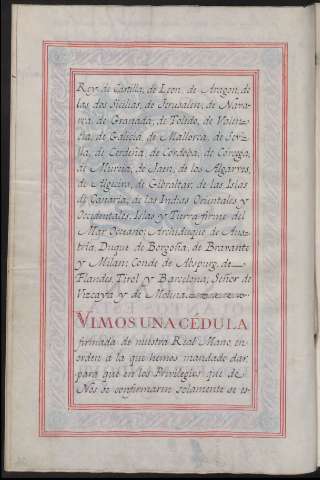 Rey de Castilla, de Leon, de Aragon, de
las dos Sicilias, de Jerusalen, de Nava-
rra, de Granada, de Toledo, de Valen-
cia, de Galicia, de Mallorca, de Sevi-
lla, de Cerdeña, de Cordoba, de Corcega,
de Murcia, de Jaen, de los Algarves,
de Algecira, de Gibraltar, de las Islas
de Canaria, de las Indias Orientales y
Occidentales, Islas y Tierra firme del
Mar Oceano; Archiduque de Aus-
tria, Duque de Borgoña, de Bravante
y Milan; Conde de Abspurg, de
Flandes, Tirol y Barcelona; Señor de
Vizcaya y de Molina.
VIMOS UNA CÉDULA
firmada de nuestra Real Mano en
orden a la que hemos mandado dar,
para que en los Privilegios que de
Nos se confirmaren solamente se es-